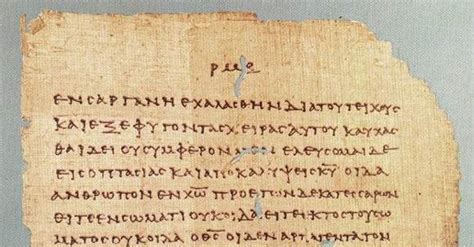 ΡΜΘ
ΕΝϹΑΡΓΑΝΗΕΧΑΛΑϹΘΗΝΔΙΑΤΟΥΤΕΙΧΟΥϹ
ΚΑΙΕΞΕΦΥΓΟΝΤΑϹΧΕΙΡΑϹΑΥΤΟΥΚΑΥΧΑϹ
ΘΑΙΔΕΙΟΥϹΥΜΦΕΡΟΝΜΕΝΕΛΕΥϹΟΜΑΙΔΕ
ΕΙϹΟΠΤΑϹΙΑϹΚΑΙΑΠΟΚΑΛΥΨΕΙϹΚ̅Υ̅ΟΙΔΑ
ΑΝΘΡΩΠΟΝΕΝΧ̅Ω̅ΠΡΟΕΤΩΝΔΕΚΑΤΕϹϹΑΡΩΝ
ΕΙΤΕΕΝϹΩΜΑΤΙΟΥΚΟΙΔΑΕΙΤΕΕΚΤΟϹΤΟΥϹΩ
ΜΑΤΟϹΟΥΚΟΙΔΑΟΘ̅Ϲ̅ΟΙΔΕΝΑΡΠΑΓΕΝΤΑΤΟΝ